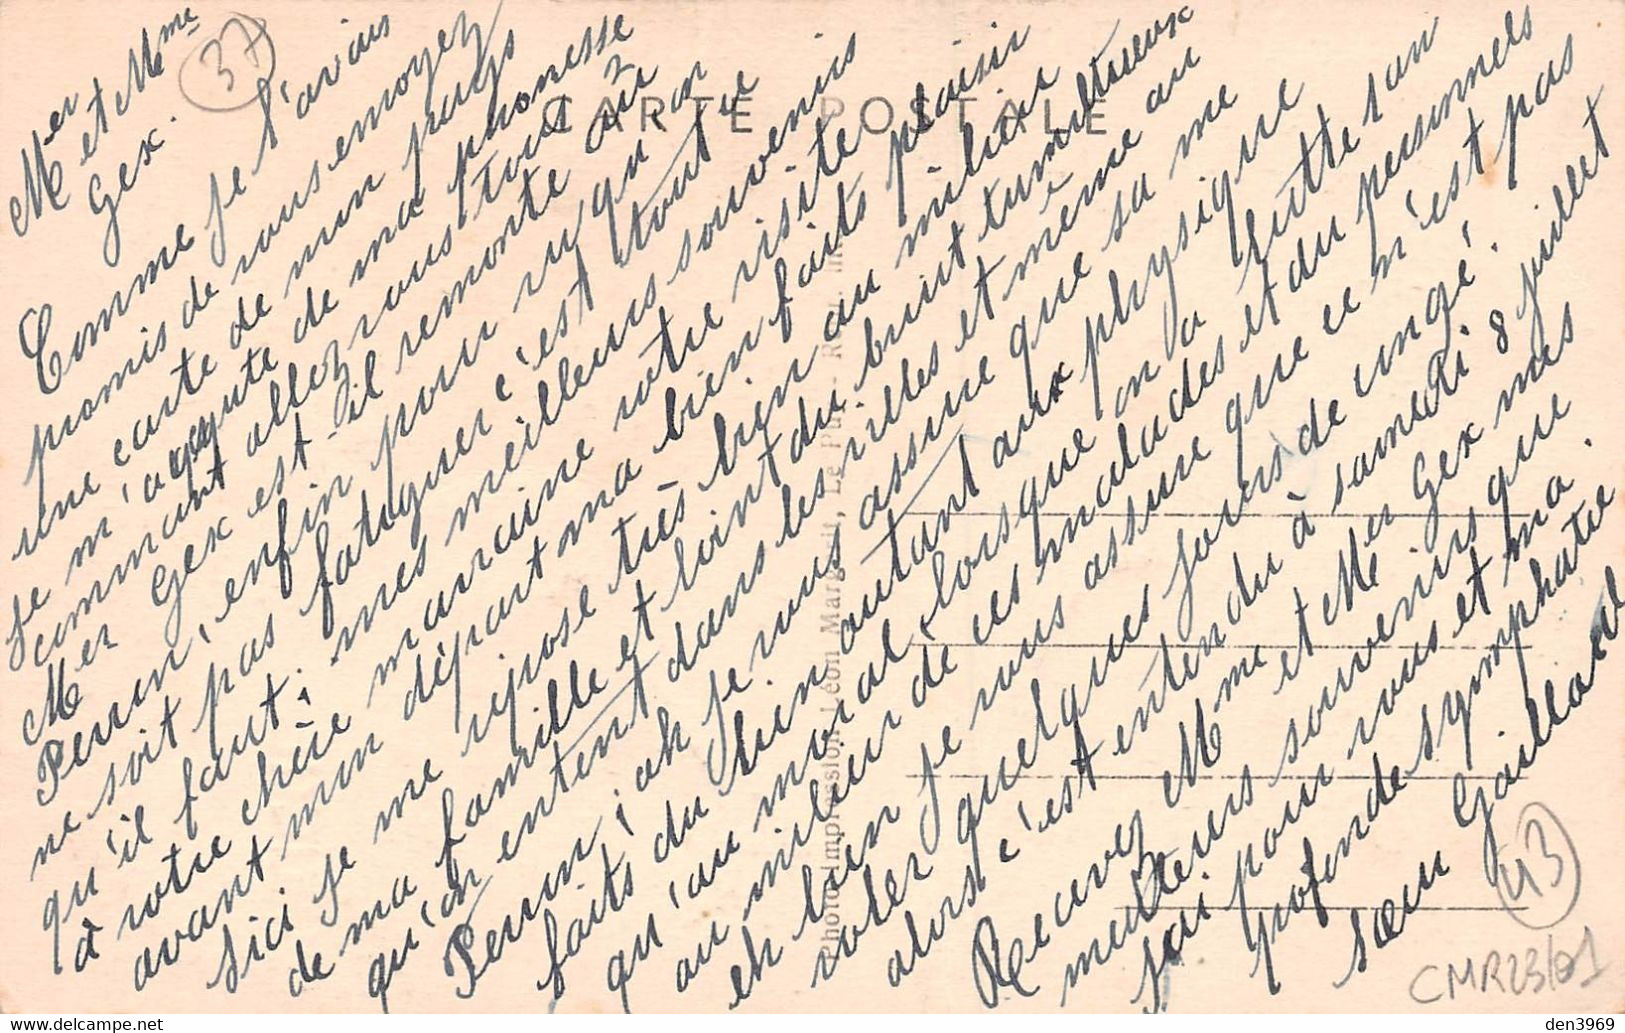 Mer et Mme
Gex.
Comme je l'avais
promis de vous envoyez
une carte de mon pays
je m'acquute de ma phonesse
comment allez vous tous 2
Mer Gex est-il remonte où
Perrin, enfin pour vu qu'on
ne soit pas fatiguer c'est tout ce
qu'il faut; mes meilleurs souvenirs
à votre chère marraine votre visite
avant mon départ m'a bien faits plaisir
Ici je me repose très bien au milieu
de ma famille et loint du bruit tumultueux
qu'on entent dans les villes et même au
Perrin, ah je vous assure que sa me
faits du bien autant aux physique
qu'au moral, lorsque on a lutte san
au milieur de ces malades et du personnels
eh bien je vous assure que ce n'est pas
voler quelques jours de congé.
alors c'est entendu à samedi 8 juillet
Recevez Mme et Mer Gex mes
meilleurs souvenirs que
soi pour vous et ma
profonde symphatie.
sœur Gaillard
37
43
CMR23/01
CARTE POSTALE
Photo-Impression Léon Margerit, Le Puy
den3969